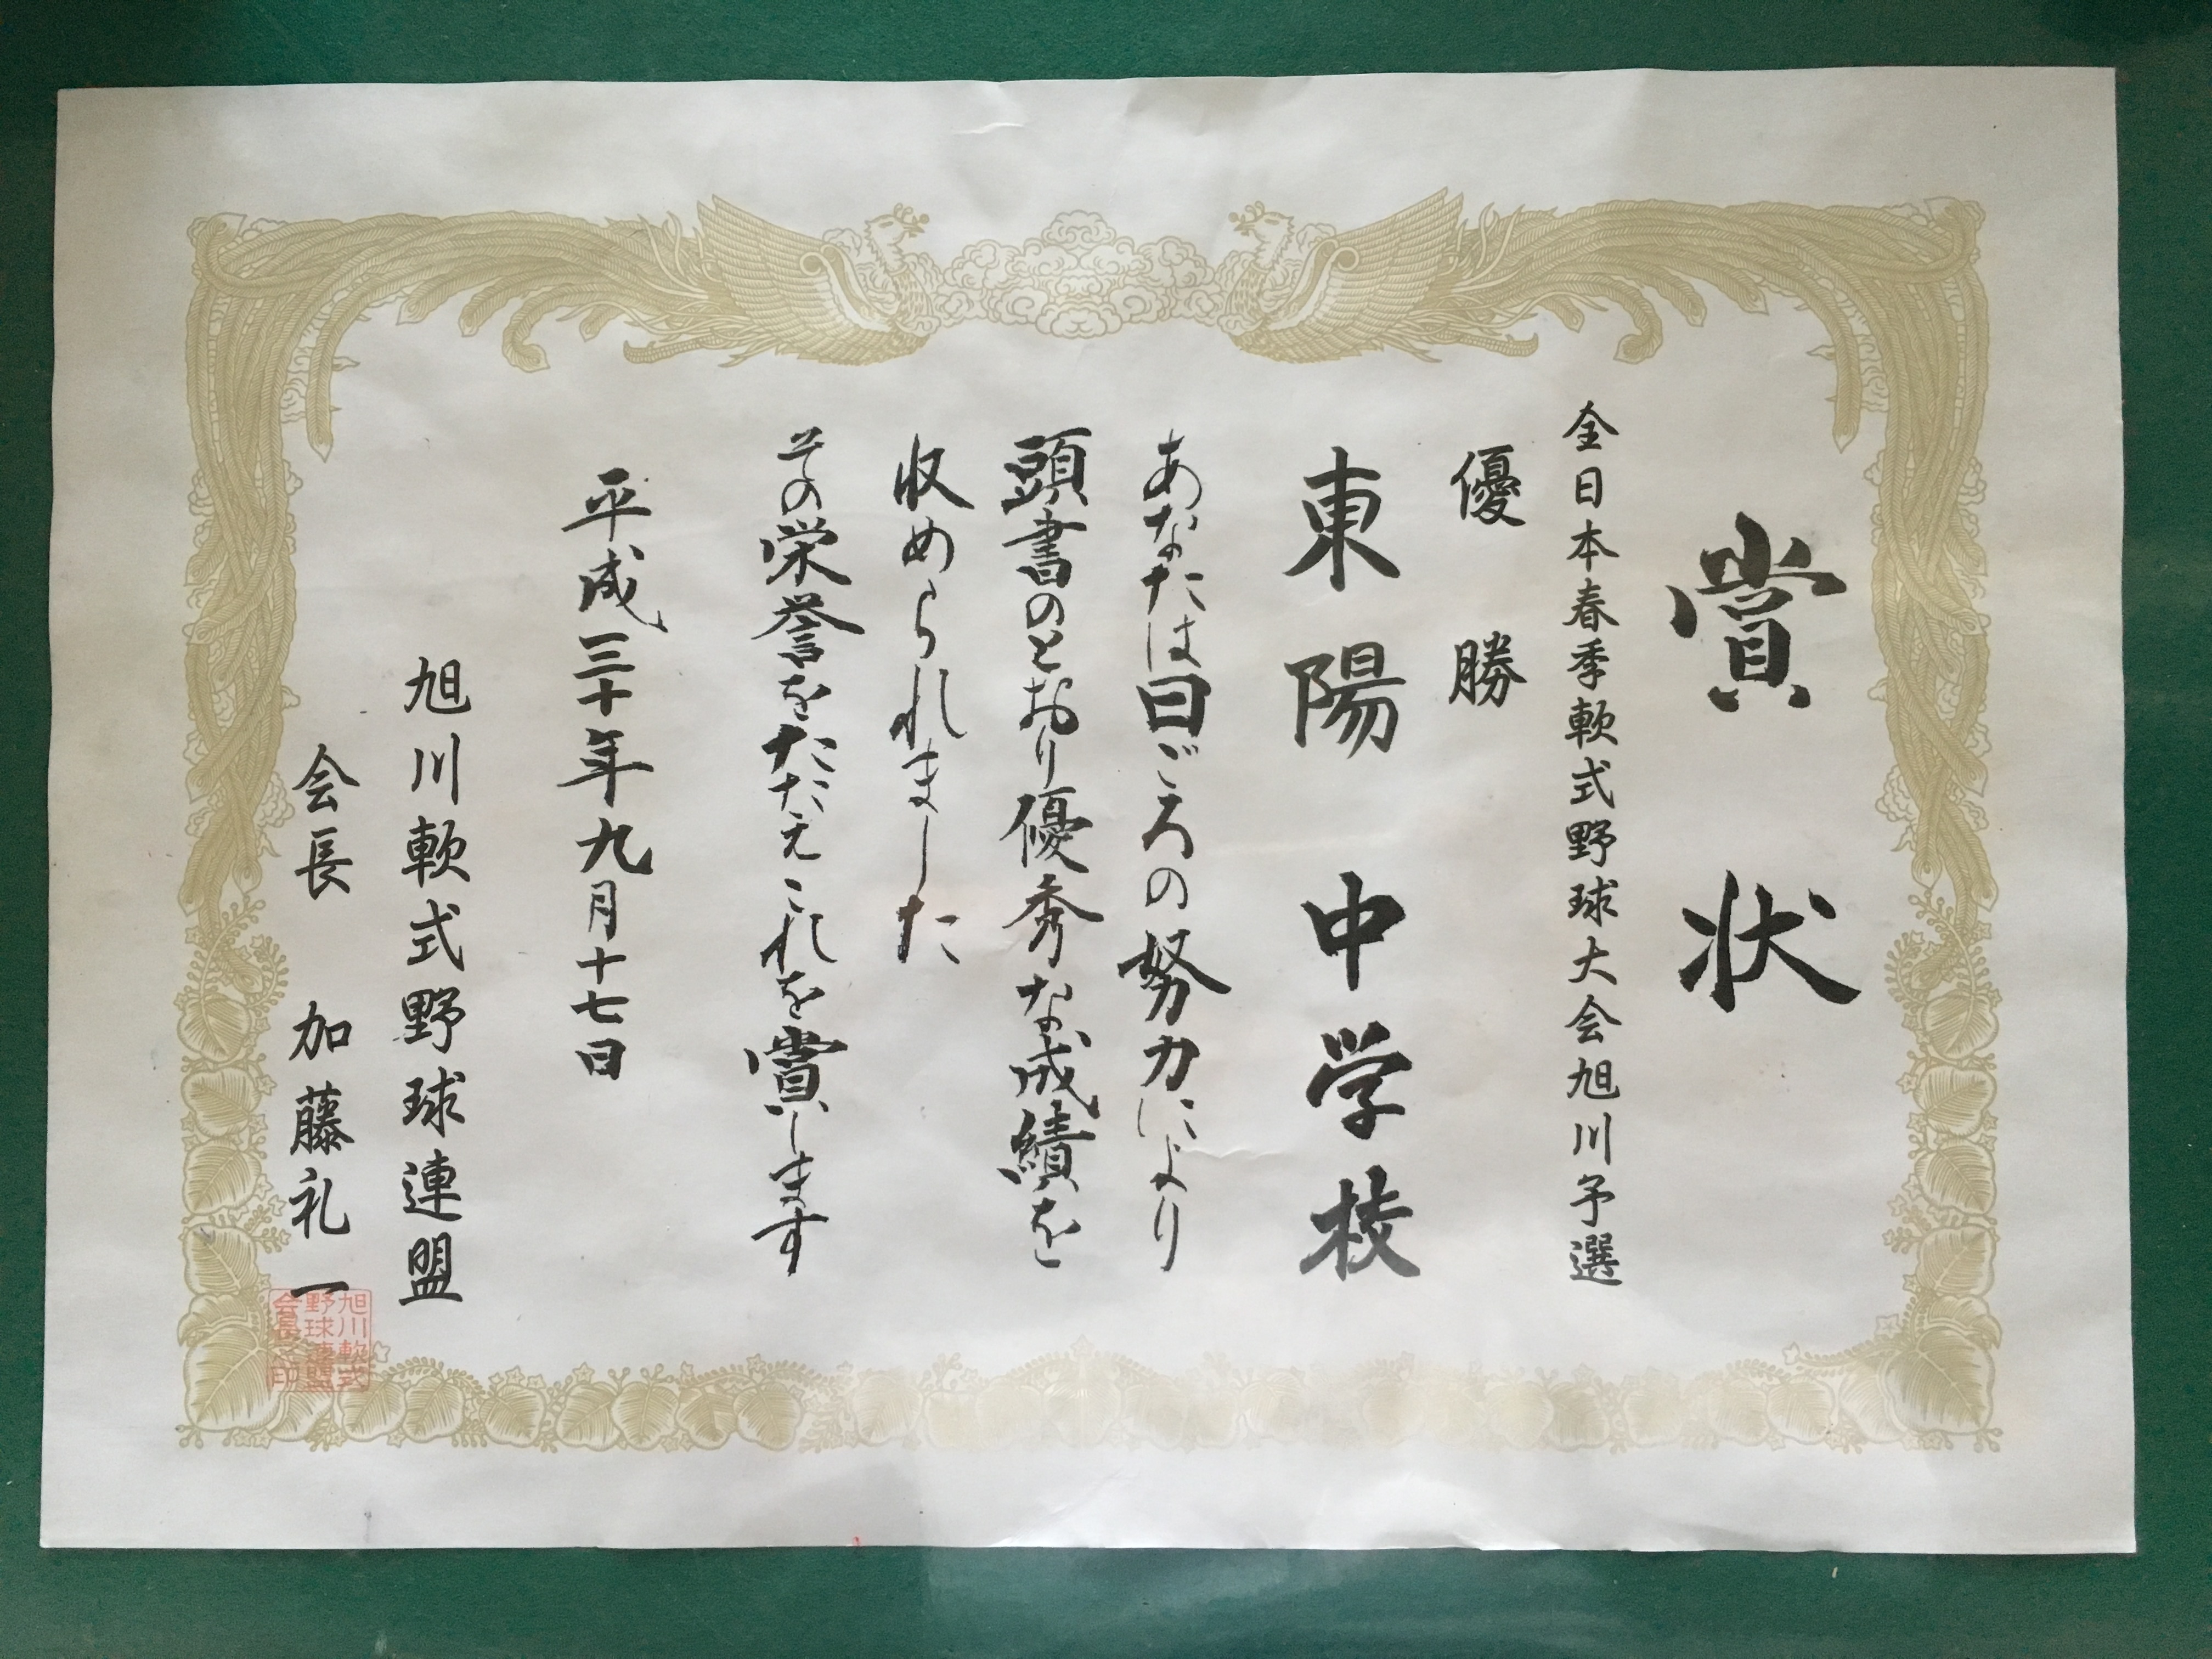 賞状
全日本春季軟式野球大会旭川予選
優勝
東陽中学校
あなたは日ごろの努力により
頭書のとおり優秀な成績を
収められました
その栄誉をたたえこれを賞します
平成三十年九月十七日
旭川軟式野球連盟
会長 加藤礼一
旭川軟式
野球連盟
会長之印